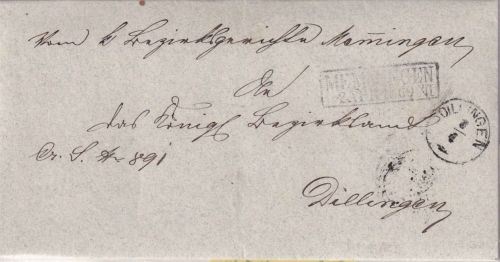 Vom k Bezirksgerichte Memmingen
An
das Königl Bezirksamt
Cr. S. No 891
Dillingen
MEMMINGEN
DILLINGEN